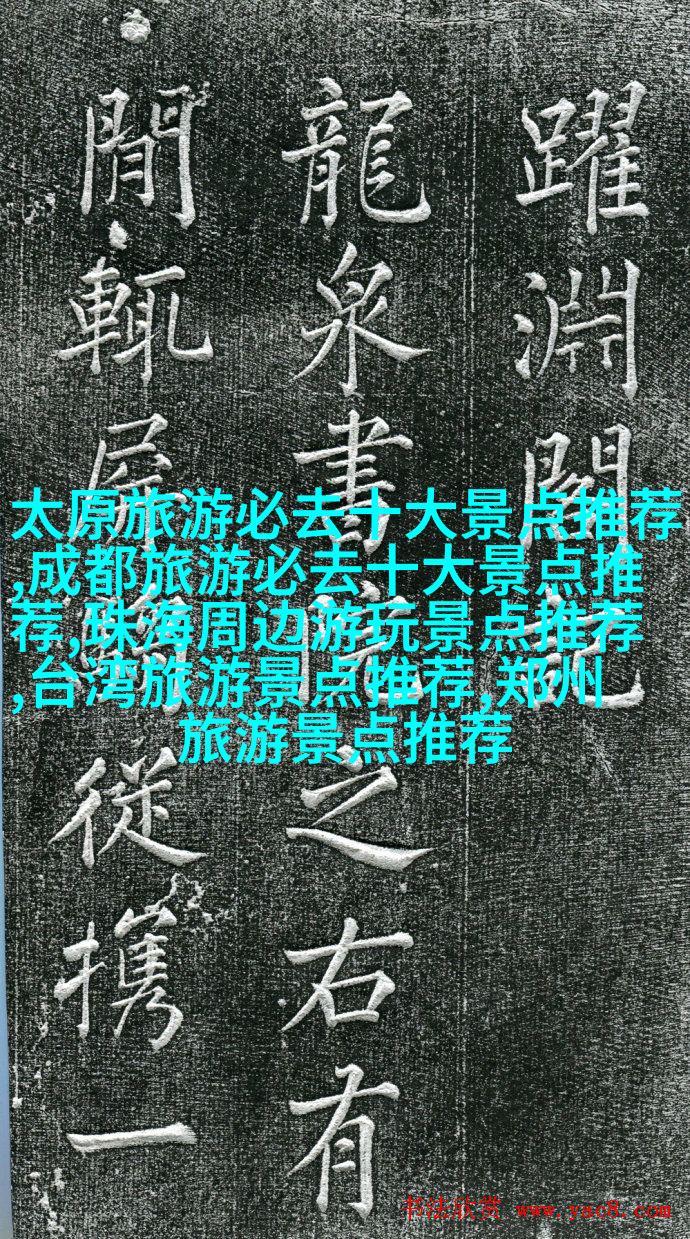 躍淵閣記
龍泉書院之右有
閒輒屏從攜一
太原旅游必去十大景点推荐
,成都旅游必去十大景点推
荐,珠海周边游玩景点推荐
,台湾旅游景点推荐,郑州
旅游景点推荐
书法欣赏 www.yac8.com